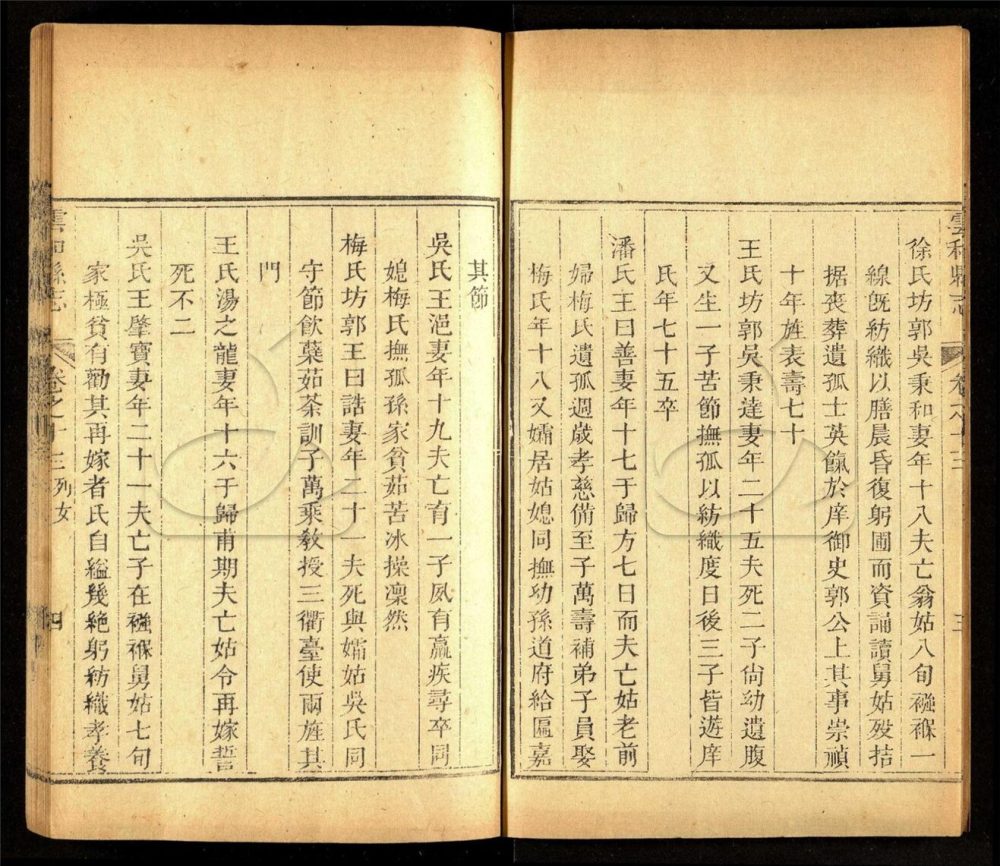 雲和縣志
卷之十三
三
徐氏坊郭吳秉和妻年十八夫亡翁姑八旬襁褓一
線旣紡織以膳晨昏復躬圃而資誦讀舅姑歿拮
据丧葬遺孤士英餼於庠御史郭公上其事崇禎
十年旌表壽七十
王氏坊郭吳秉逵妻年二十五夫死二子尙幼遺腹
又生一子苦節撫孤以紡織度日後三子皆遊庠
氏年七十五卒
潘氏王曰善妻年十七于歸方七日而夫亡姑老前
婦梅氏遺孤週歲孝慈備至子萬壽補弟子員娶
梅氏年十八又孀居姑媳同撫幼孫道府給匾嘉
其節
吳氏王浥妻年十九夫亡有一子夙有羸疾尋卒同
媳梅氏撫孤孫家貧茹苦冰操凜然
梅氏坊郭王曰誥妻年二十一夫死與孀姑吳氏同
守節飮蘗茹荼訓子萬乘敎授三衢臺使兩旌其
門
王氏湯之龍妻年十六于歸甫期夫亡姑令再嫁誓
死不二
吳氏王肇寶妻年二十一夫亡子在襁褓舅姑七旬
家極貧有勸其再嫁者氏自縊幾絶躬紡織孝養
雲和縣志
卷之十三
列女
四